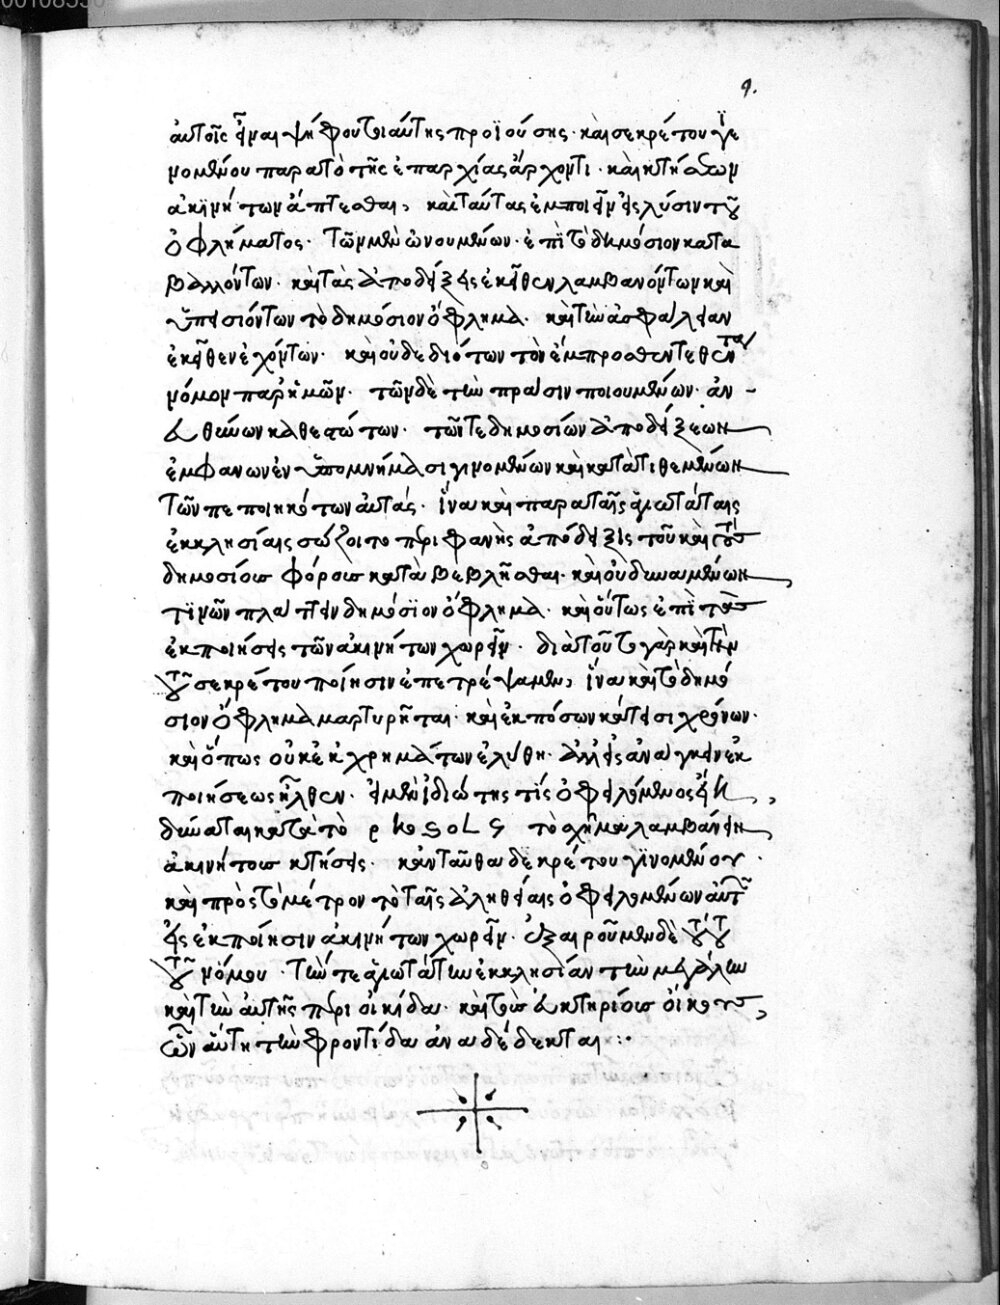 00108530
9.
αὐτοῖς εἶναι ψήφου τοιαύτης προϊούσης· καὶ σεκρέτου γι
νομένου παρὰ τῷ τῆς ἐπαρχίας ἄρχοντι· καὶ κτήσεων
ἀκινήτων ἅπτεσθαι, καὶ ταύτας ἐκποιεῖν εἰς λύσιν τοῦ
ὀφλήματος· τῶν μὲν ὠνουμένων· ἐπὶ τὸ δημόσιον κατα
βαλλόντων· καὶ τὰς ἀποδείξεις ἐκεῖθεν λαμβανόντων καὶ
ὑπεισιόντων τὸ δημόσιον ὄφλημα· καὶ τὴν ἀσφάλειαν
ἐκεῖθεν ἐχόντων· καὶ οὐ δεδιότων τὸν ἔμπροσθεν τεθέντα
νόμον παρ' ἡμῶν· τῶν δὲ τὴν πρᾶσιν ποιουμένων· ἀν
ευθύνων καθεστώτων· τῶν τε δημοσίων ἀποδείξεων
ἐμφανῶν ἐν ὑπομνήμασι γινομένων καὶ κατατιθεμένων
τῶν πεποιηκότων αὐτάς· ἵνα καὶ παρὰ ταῖς ἁγιωτάταις
ἐκκλησίαις σώζοιτο περιφανὴς ἀπόδειξις τοῦ καὶ τοὺς
δημοσίους φόρους καταβεβλῆσθαι· καὶ οὐ δυναμένων
τιμῶν πλὴν δημόσιον ὄφλημα· καὶ οὕτως ἐπὶ τὰς
ἐκποιήσεις τῶν ἀκινήτων χωρεῖν· διὰ τοῦτο γὰρ καὶ τὴν
τοῦ σεκρέτου ποίησιν ἐπετρέψαμεν, ἵνα καὶ τὸ δημό
σιον ὄφλημα μαρτυρῆται· καὶ ἐκ πόσων κάτεισι χρόνων·
καὶ ὅπως οὐκ ἐκ χρημάτων ἐλύθη· ἀλλ' εἰς ἀνάγκην ἐκ
ποιήσεως ἦλθεν· εἰ μὲν ἰδιώτης τίς ὁ ὀφειλόμενος εἴη,
δύναται κατὰ τὸ τὸ σχῆμα λαμβάνειν
ἀκινήτους κτήσεις· κἀνταῦθα δεκρέτου γινομένου·
καὶ πρὸς τὸ μέτρον τὸ ταῖς ἀληθείαις ὀφειλομένων αὐτῷ
εἰς ἐκποίησιν ἀκινήτων χωρεῖν· ἐξαιροῦμεν δὲ τούτου
τοῦ νόμου· τήν τε ἁγιωτάτην ἐκκλησίαν τὴν μεγάλην
καὶ τὴν αὐτῆς περιοικίδα· καὶ τοὺς εὐκτηρίους οἴκους,
ὧν αὕτη τὴν φροντίδα ἀναδέδεκται :·